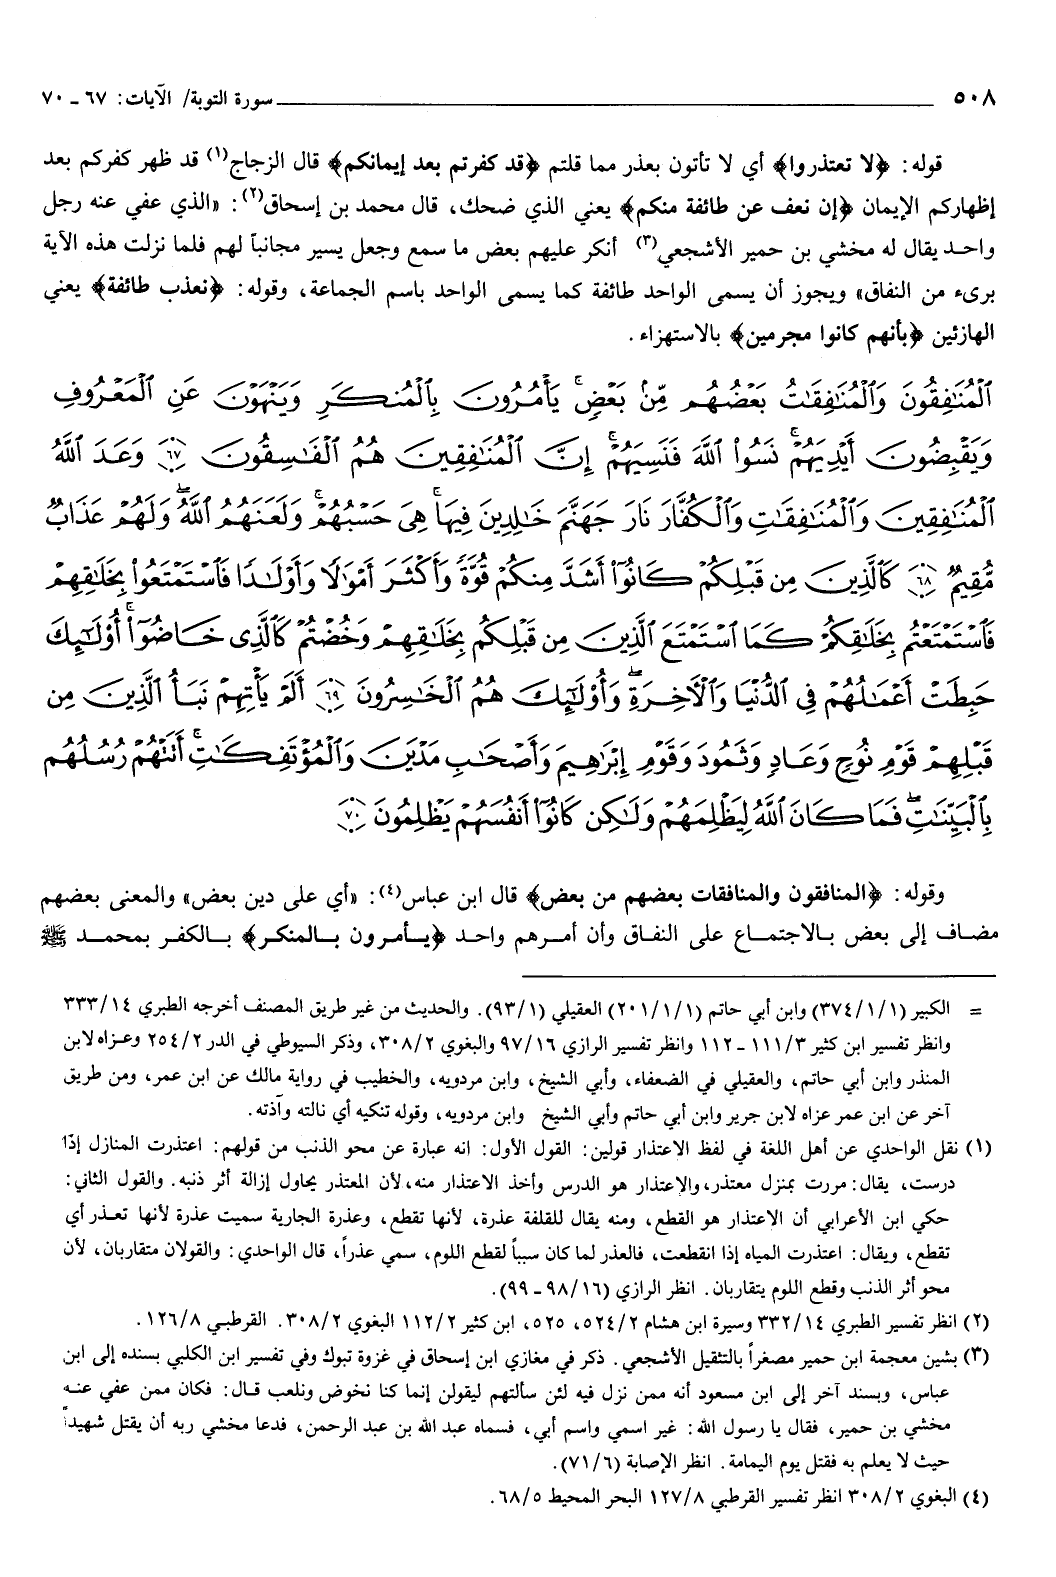 ٥٠٨ سورة التوبة/ الآيات: ٦٧ ـ ٧٠
قوله: ﴿لا تعتذروا﴾ أي لا تأتون بعذر مما قلتم ﴿قد كفرتم بعد إيمانكم﴾ قال الزجاج(١) قد ظهر كفركم بعد
إظهاركم الإيمان ﴿إن نعف عن طائفة منكم﴾ يعني الذي ضحك، قال محمد بن إسحاق(٢): «الذي عفي عنه رجل
واحد يقال له مخشي بن حمير الأشجعي(٣) أنكر عليهم بعض ما سمع وجعل يسير مجانباً لهم فلما نزلت هذه الآية
برىء من النفاق» ويجوز أن يسمى الواحد طائفة كما يسمى الواحد باسم الجماعة، وقوله: ﴿نعذب طائفة﴾ يعني
الهازئين ﴿بأنهم كانوا مجرمين﴾ بالاستهزاء.
ٱلْمُنَٰفِقُونَ وَٱلْمُنَٰفِقَٰتُ بَعْضُهُم مِّنۢ بَعْضٍ ۚ يَأْمُرُونَ بِٱلْمُنكَرِ وَيَنْهَوْنَ عَنِ ٱلْمَعْرُوفِ
وَيَقْبِضُونَ أَيْدِيَهُمْ ۚ نَسُوا۟ ٱللَّهَ فَنَسِيَهُمْ ۗ إِنَّ ٱلْمُنَٰفِقِينَ هُمُ ٱلْفَٰسِقُونَ ٦٧ وَعَدَ ٱللَّهُ
ٱلْمُنَٰفِقِينَ وَٱلْمُنَٰفِقَٰتِ وَٱلْكُفَّارَ نَارَ جَهَنَّمَ خَٰلِدِينَ فِيهَا ۚ هِىَ حَسْبُهُمْ ۚ وَلَعَنَهُمُ ٱللَّهُ ۖ وَلَهُمْ عَذَابٌ
مُّقِيمٌ ٦٨ كَٱلَّذِينَ مِن قَبْلِكُمْ كَانُوٓا۟ أَشَدَّ مِنكُمْ قُوَّةً وَأَكْثَرَ أَمْوَٰلًا وَأَوْلَٰدًا فَٱسْتَمْتَعُوا۟ بِخَلَٰقِهِمْ
فَٱسْتَمْتَعْتُم بِخَلَٰقِكُمْ كَمَا ٱسْتَمْتَعَ ٱلَّذِينَ مِن قَبْلِكُم بِخَلَٰقِهِمْ وَخُضْتُمْ كَٱلَّذِى خَاضُوٓا۟ ۚ أُو۟لَٰٓئِكَ
حَبِطَتْ أَعْمَٰلُهُمْ فِى ٱلدُّنْيَا وَٱلْءَاخِرَةِ ۖ وَأُو۟لَٰٓئِكَ هُمُ ٱلْخَٰسِرُونَ ٦٩ أَلَمْ يَأْتِهِمْ نَبَأُ ٱلَّذِينَ مِن
قَبْلِهِمْ قَوْمِ نُوحٍ وَعَادٍ وَثَمُودَ وَقَوْمِ إِبْرَٰهِيمَ وَأَصْحَٰبِ مَدْيَنَ وَٱلْمُؤْتَفِكَٰتِ ۚ أَتَتْهُمْ رُسُلُهُم
بِٱلْبَيِّنَٰتِ ۖ فَمَا كَانَ ٱللَّهُ لِيَظْلِمَهُمْ وَلَٰكِن كَانُوٓا۟ أَنفُسَهُمْ يَظْلِمُونَ ٧٠
وقوله: ﴿المنافقون والمنافقات بعضهم من بعض﴾ قال ابن عباس(٤): «أي على دين بعض» والمعنى بعضهم
مضاف إلى بعض بالاجتماع على النفاق وأن أمرهم واحد ﴿يأمرون بالمنكر﴾ بالكفر بمحمد ﷺ
= الكبير (٣٧٤/١/١) وابن أبي حاتم (٢٠١/١/١) العقيلي (٩٣/١). والحديث من غير طريق المصنف أخرجه الطبري ٣٣٣/١٤
وانظر تفسير ابن كثير ١١١/٣ ـ ١١٢ وانظر تفسير الرازي ٩٧/١٦ والبغوي ٣٠٨/٢، وذكر السيوطي في الدر ٢٥٤/٢ وعزاه لابن
المنذر وابن أبي حاتم، والعقيلي في الضعفاء، وأبي الشيخ، وابن مردويه، والخطيب في رواية مالك عن ابن عمر، ومن طريق
آخر عن ابن عمر عزاه لابن جرير وابن أبي حاتم وأبي الشيخ وابن مردويه، وقوله تنكيه أي نالته وآذته.
(١) نقل الواحدي عن أهل اللغة في لفظ الاعتذار قولين: القول الأول: انه عبارة عن محو الذنب من قولهم: اعتذرت المنازل إذا
درست، يقال: مررت بمنزل معتذر، والاعتذار هو الدرس وأخذ الاعتذار منه، لأن المعتذر يحاول إزالة أثر ذنبه. والقول الثاني:
حكي ابن الأعرابي أن الاعتذار هو القطع، ومنه يقال للقلفة عذرة، لأنها تقطع، وعذرة الجارية سميت عذرة لأنها تعذر أي
تقطع، ويقال: اعتذرت المياه إذا انقطعت، فالعذر لما كان سبباً لقطع اللوم، سمي عذراً، قال الواحدي: والقولان متقاربان، لأن
محو أثر الذنب وقطع اللوم يتقاربان. انظر الرازي (٩٨/١٦ ـ ٩٩).
(٢) انظر تفسير الطبري ٣٣٢/١٤ وسيرة ابن هشام ٥٢٤/٢، ٥٢٥، ابن كثير ١١٢/٢ البغوي ٣٠٨/٢. القرطبي ١٢٦/٨.
(٣) بشين معجمة ابن حمير مصغراً بالتثقيل الأشجعي. ذكر في مغازي ابن إسحاق في غزوة تبوك وفي تفسير ابن الكلبي بسنده إلى ابن
عباس، وبسند آخر إلى ابن مسعود أنه ممن نزل فيه لئن سألتهم ليقولن إنما كنا نخوض ونلعب قال: فكان ممن عفي عنه
مخشي بن حمير، فقال يا رسول الله: غير اسمي واسم أبي، فسماه عبد الله بن عبد الرحمن، فدعا مخشي ربه أن يقتل شهيداً
حيث لا يعلم به فقتل يوم اليمامة. انظر الإصابة (٧١/٦).
(٤) البغوي ٣٠٨/٢ انظر تفسير القرطبي ١٢٧/٨ البحر المحيط ٦٨/٥.